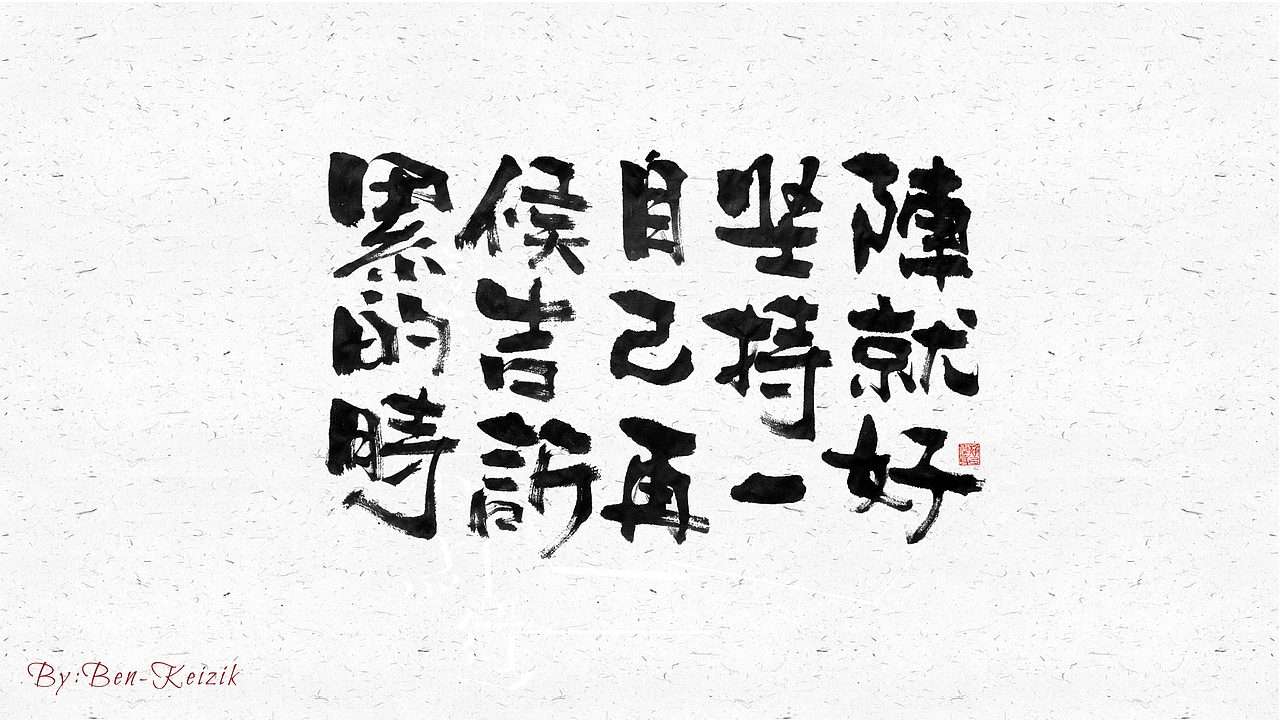 累的時
候告訴
自己再
坚持一
陣就好
By:Ben-Keizik